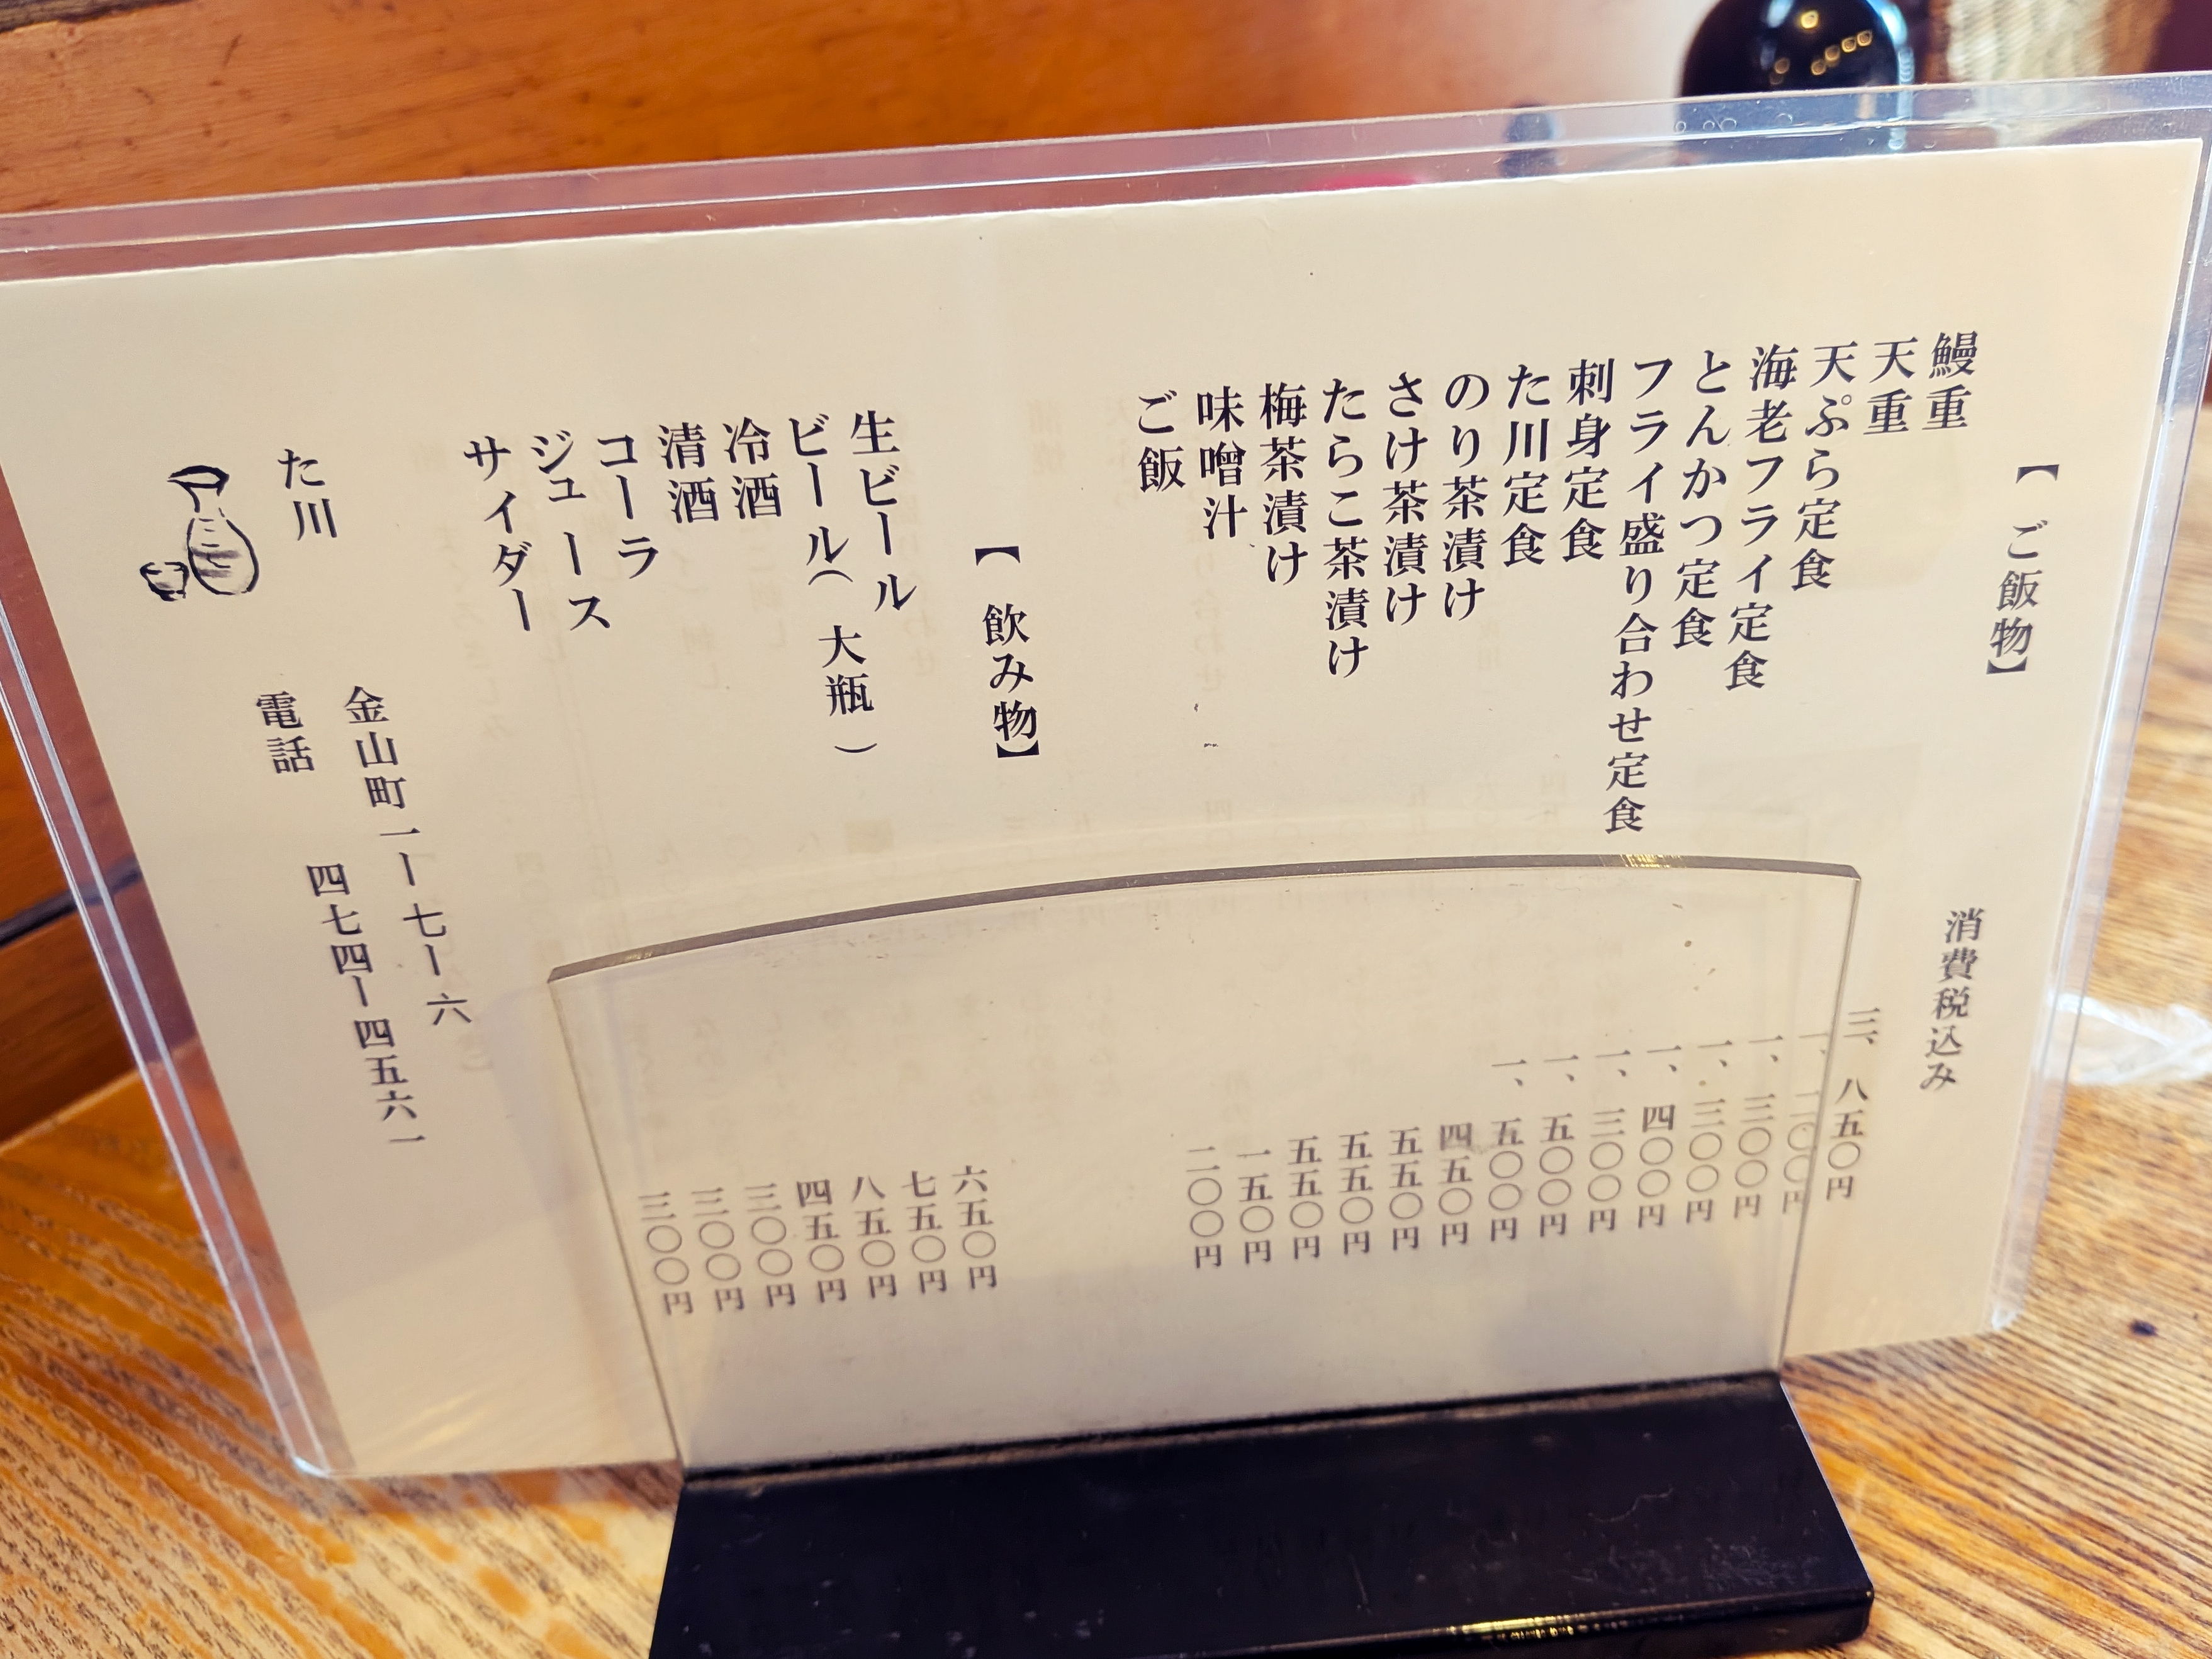 【ご飯物】 消費税込み
鰻重 三、八五〇円
天重 一、二〇〇円
天ぷら定食 一、三〇〇円
海老フライ定食 一、三〇〇円
とんかつ定食 一、四〇〇円
フライ盛り合わせ定食 一、三〇〇円
刺身定食 一、五〇〇円
た川定食 一、五〇〇円
のり茶漬け 四五〇円
さけ茶漬け 五五〇円
たらこ茶漬け 五五〇円
梅茶漬け 五五〇円
味噌汁 一五〇円
ご飯 二〇〇円
【飲み物】
生ビール 六五〇円
ビール(大瓶) 七五〇円
冷酒 八五〇円
清酒 四五〇円
コーラ 三〇〇円
ジュース 三〇〇円
サイダー 三〇〇円
た川 金山町一ー七ー六
電話 四七四ー四五六一